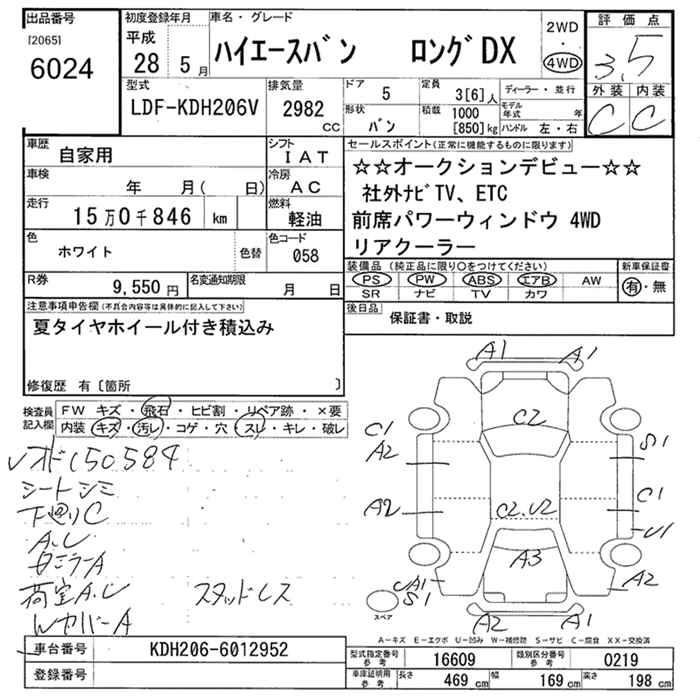 出品番号
[2065]
6024
初度登録年月
平成
28 5月
車名・グレード
ハイエースバン ロングDX
2WD
・
4WD
評価点
3.5
外装 内装
C C
型式
LDF-KDH206V
排気量
2982
CC
ドア
5
形状
バン
定員
3[6]人
積載 1000
[850]kg
ディーラー・並行
モデル年式 年
ハンドル 左・右
車歴
自家用
シフト
IAT
車検
年 月( 日)
冷房
AC
走行
15万0千846 km
燃料
軽油
色
ホワイト
色替
色コード
058
R券
9,550円
名変通知期限
月 日
セールスポイント(正常に機能するものに限ります)
☆☆オークションデビュー☆☆
社外ナビTV、ETC
前席パワーウィンドウ 4WD
リアクーラー
装備品 (純正品に限り○をつけてください)
PS PW ABS エアB AW
SR ナビ TV カワ
新車保証書
有・無
後日品
保証書・取説
注意事項申告欄(不具合内容等は具体的に記入して下さい)
夏タイヤホイール付き積込み
修復歴 有〔箇所 〕
検査員
記入欄
FW キズ・飛石・ヒビ割・リペア跡・×要
内装 キズ・汚レ・コゲ・穴・スレ・キレ・破レ
150584
シートシミ
下廻りC
A.U
ミラーA
荷室A.U
スタッドレス
A1 A1
C2
C1
A2
S1
A2
C2.U2
C1
U1
A3
UA1
S1
A2
A2 A1
スペア
A-キズ E-エクボ U-凹み W-補修跡 S-サビ C-腐食 XX-交換済
車台番号
KDH206-6012952
登録番号
型式指定番号
参考
16609
類別区分番号
参考
0219
車庫証明用
参考
長さ 469 cm 幅 169 cm 高さ 198 cm